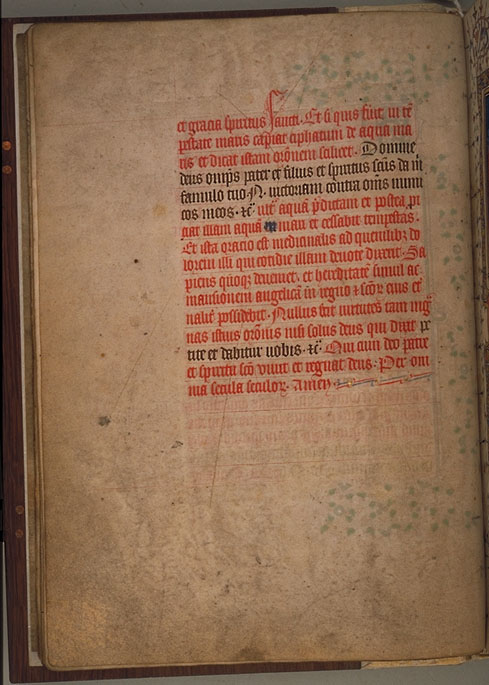 et gracia spiritus sancti. Et si quis fuit in tē
pestate maris capiat ciphatum de aqua ma
ris et dicat istam orōnem scilicet. Domine
deus omps pater et filius et spiritus scūs da m̄
famulo tuo N. uictoriam contra om̄s inimi
cos meos. ⁊c̄. iuxͭ aquā p̄dictam et postea pi
ciat illam aquā in mari et cessabit tempestas.
Et ista oracio est medicinalis ad quemlibꝫ do
lorem illi qui cotidie illam deuote dixerit. Sa
piens quoqꝫ deueniet. et hereditatē simul ac
mansionem angelicā in regno ⁊ scōꝝ eius et̄
naliṫ possidebit. Nullus scit uirtutes tam mag
nas istius orōnis nisi solus deus qui dixit pe
tite et dabitur uobis. ⁊c̄. Qui cum deo patre
et spiritu scō viuit et regnat deus. Per om
nia secula seculoꝝ. Amen